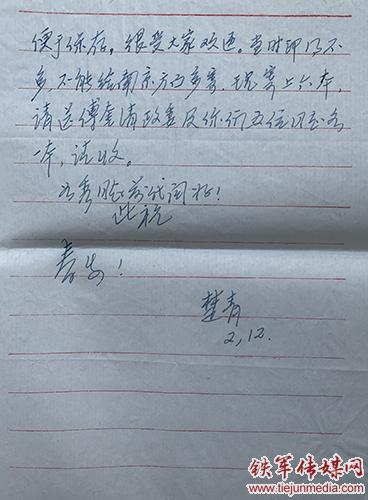 便于保存。很受大家欢迎。当时印得不
多,不能给南京方面多寄。现寄上六本,
请送傅奎清政委及你们五位同志各
一本,请收。
此祝
春安!
楚青
2,12.
铁军传媒网
www.tiejunmedia.com